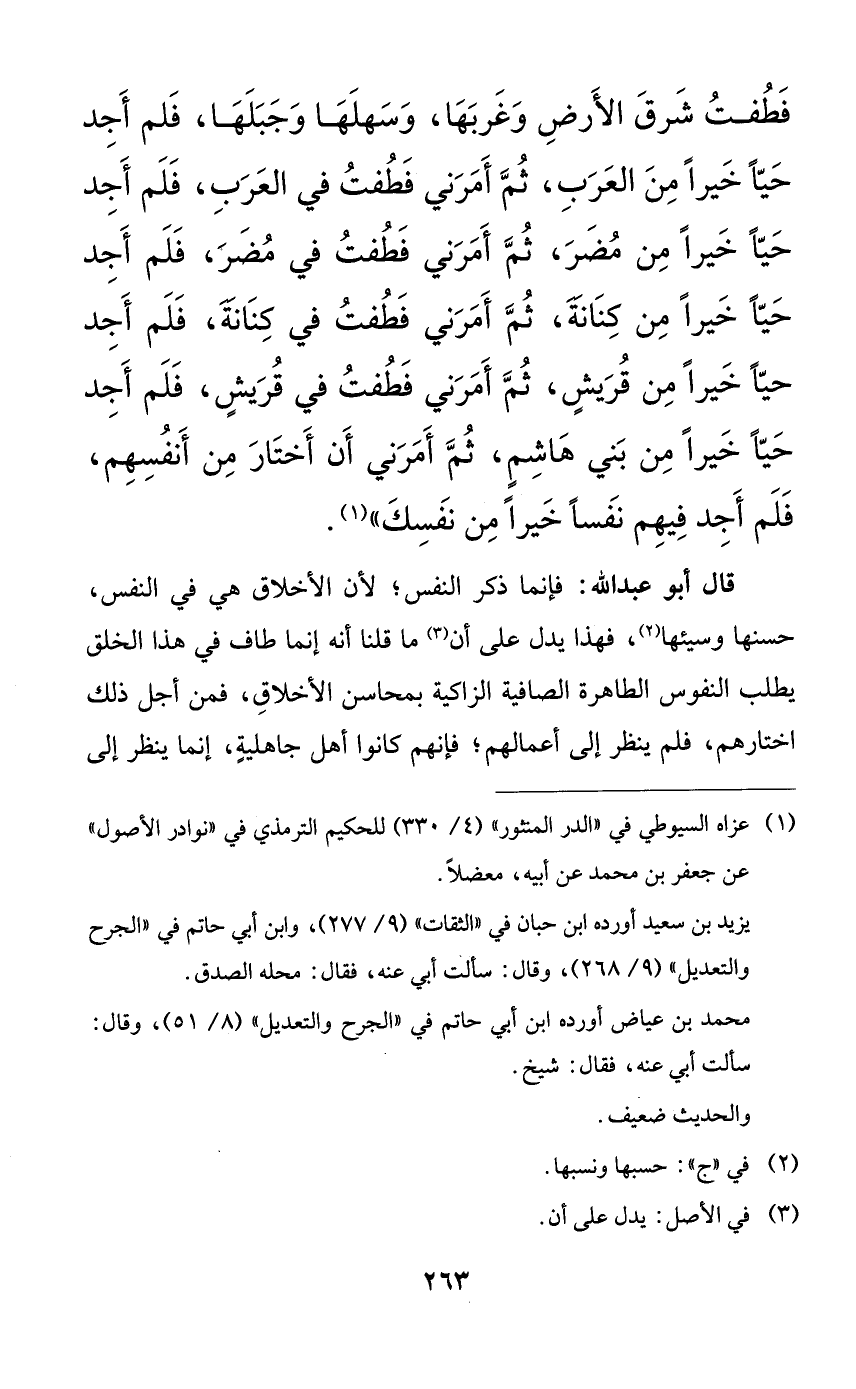 فَطُفـتُ شَرقَ الأَرضِ وَغَربَهَا، وَسَهلَهَـا وَجَبَلَهَـا، فَلم أَجِد
حَيّاً خَيراً مِنَ العَرَبِ، ثُمَّ أَمَرَني فَطُفتُ في العَرَبِ، فَلَم أَجِد
حَيّاً خَيراً مِن مُضَرَ، ثُمَّ أَمَرَني فَطُفتُ في مُضَرَ، فَلَم أَجِد
حَيّاً خَيراً مِن كِنَانَةَ، ثُمَّ أَمَرَني فَطُفتُ في كِنَانَةَ، فَلَم أَجِد
حيّاً خَيراً مِن قُرَيشٍ، ثُمَّ أَمَرَني فَطُفتُ في قُرَيشٍ، فَلَم أَجِد
حَيّاً خَيراً مِن بَني هَاشِمٍ، ثُمَّ أَمَرَني أَن أَختَارَ مِن أَنفُسِهِم،
فَلَم أَجِد فِيهِم نَفَساً خَيراً مِن نَفَسِكَ»(١).
قال أبو عبدالله: فإنما ذكر النفس؛ لأن الأخلاق هي في النفس،
حسنها وسيئها(٢)، فهذا يدل على أن(٣) ما قلنا أنه إنما طاف في هذا الخلق
يطلب النفوس الطاهرة الصافية الزاكية بمحاسن الأخلاقِ، فمن أجل ذلك
اختارهم، فلم ينظر إلى أعمالهم؛ فإنهم كانوا أهل جاهليةٍ، إنما ينظر إلى
(١) عزاه السيوطي في «الدر المنثور» (٤/ ٣٣٠) للحكيم الترمذي في «نوادر الأصول»
عن جعفر بن محمد عن أبيه، معضلاً.
يزيد بن سعيد أورده ابن حبان في «الثقات» (٩/ ٢٧٧)، وابن أبي حاتم في «الجرح
والتعديل» (٩/ ٢٦٨)، وقال: سألت أبي عنه، فقال: محله الصدق.
محمد بن عياض أورده ابن أبي حاتم في «الجرح والتعديل» (٨/ ٥١)، وقال:
سألت أبي عنه، فقال: شيخ.
والحديث ضعيف.
(٢) في «ج»: حسبها ونسبها.
(٣) في الأصل: يدل على أن.
٢٦٣